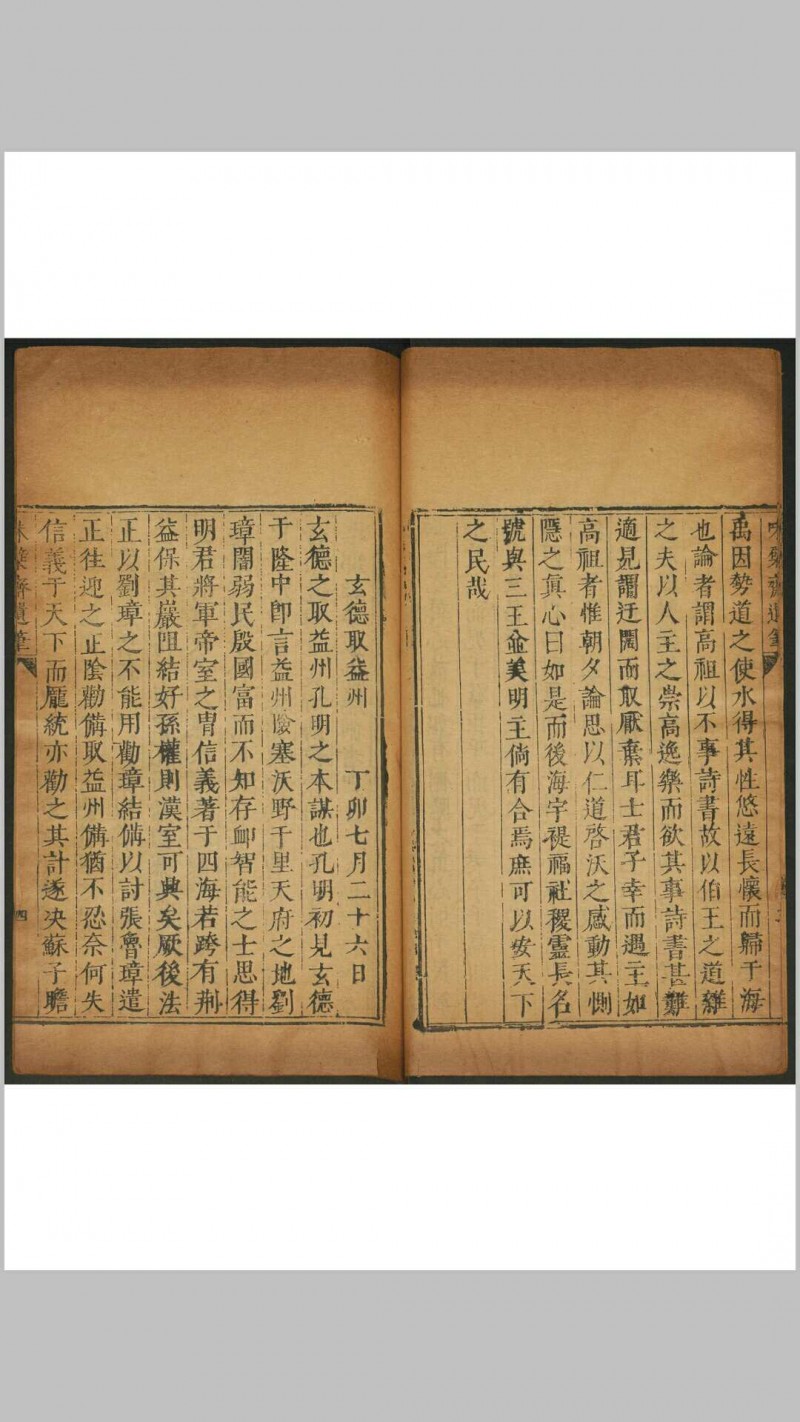 禹因勢道之使水得其性悠遠長懷而歸于海
也論者謂高祖以不事詩書故以伯王之道雜
之夫以人主之崇高逸樂而欲其事詩書甚難
適見謂迂闊而取厭棄耳士君子幸而遇主如
高祖者惟朝夕論思以仁道啓沃之感動其惻
隱之眞心曰如是而後海宇禔福社稷靈長名
號與三王並美明主倘有合焉庶可以安天下
之民哉
玄德取益州 丁卯七月二十六日
玄德之取益州孔明之本謀也孔明初見玄德
于隆中卽言益州險塞沃野千里天府之地劉
璋闇弱民殷國富而不知存卹智能之士思得
明君將軍帝室之胄信義著于四海若跨有荆
益保其巖阻結好孫權則漢室可興矣厥後法
正以劉璋之不能用勸璋結備以討張魯璋遣
正往迎之正陰勸備取益州備猶不忍奈何失
信義于天下而龐統亦勸之其計遂決蘇子瞻
四